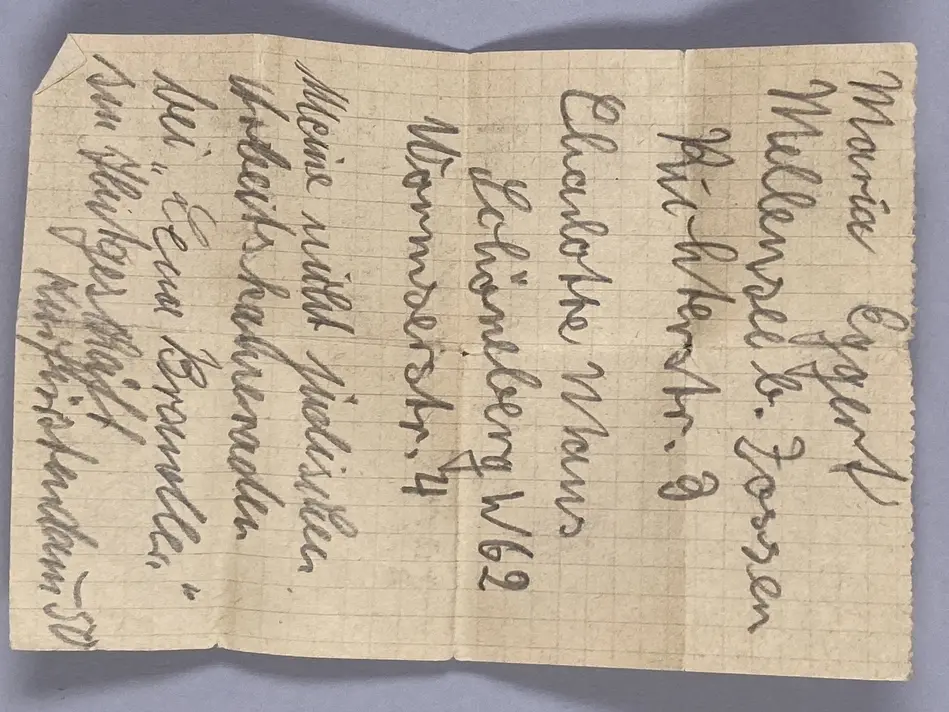 Maria Eggert
Mellensee b. Zossen
Richterstr. 3
Charlotte Maus
Schöneberg W62
Wormserstr. 4
Meine nicht jüdischen
Arbeitskameraden
bei „Lena Brandler"
Kurfürstendamm 50